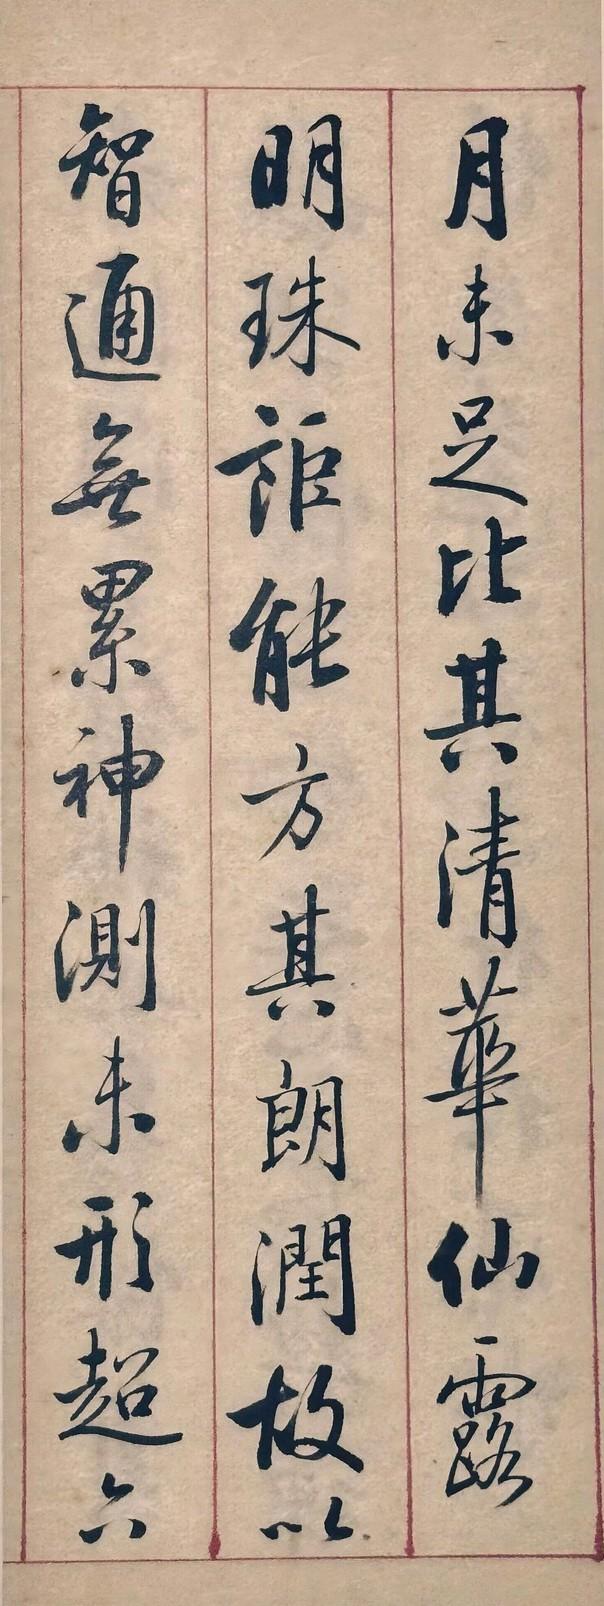 月未足比其清華仙露
明珠詎能方其朗潤故以
智通無累神測未形超六